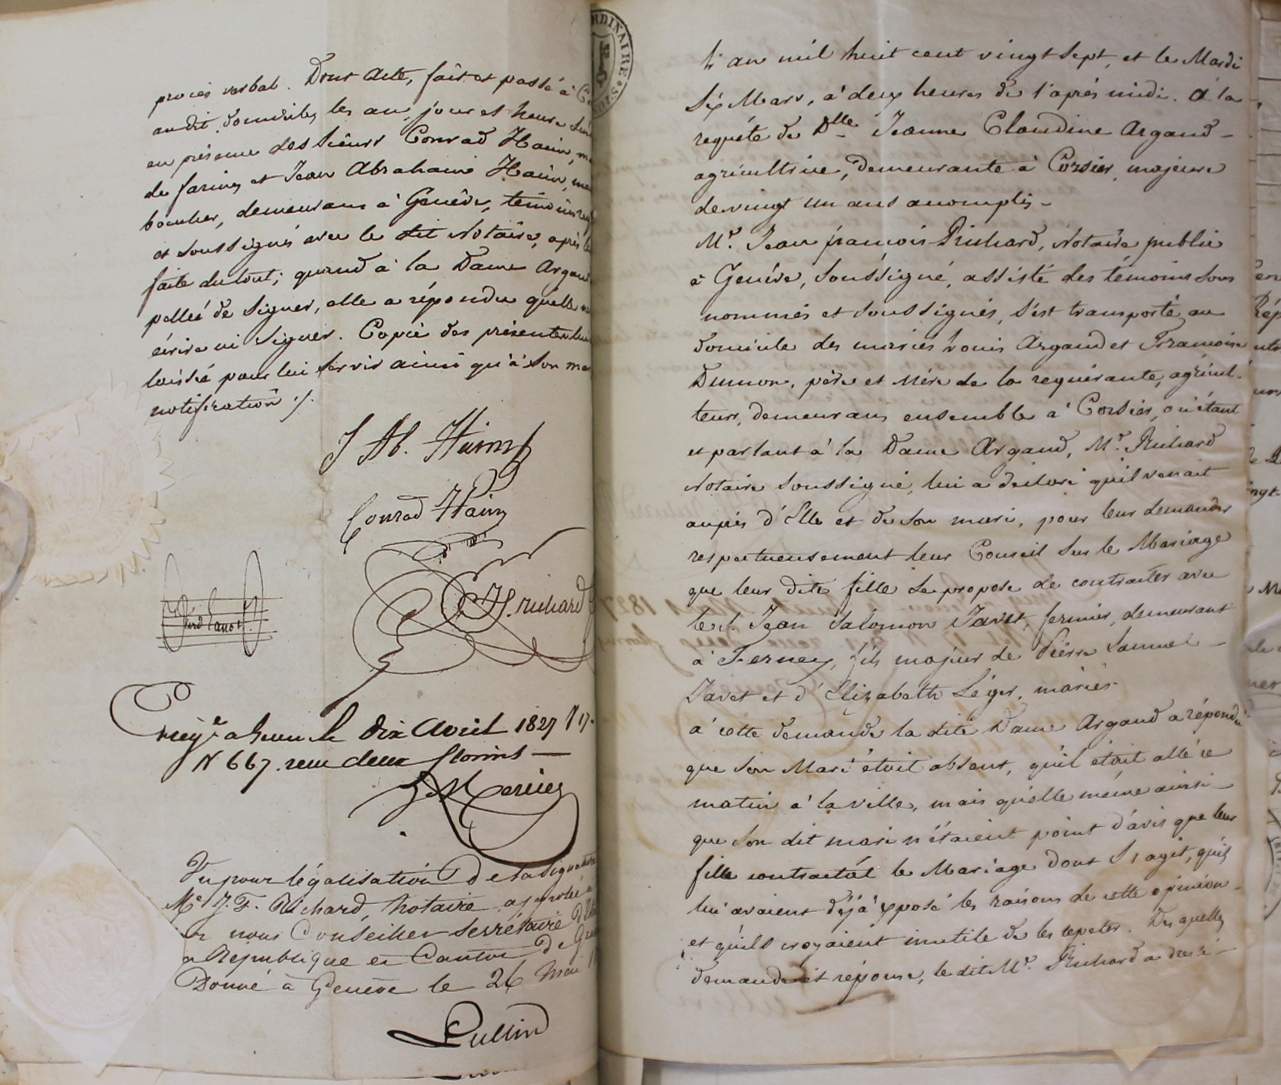 procès verbal. Dont acte, fait et passé à
audit domicile, les an, jour et heure
en présence des Sieurs Conrad Hainn,
de farines et Jean Abraham Hainn,
boucher, demeurans à Genève, témoins
et soussignés avec le dit Notaire, après
faite du tout; quand à la Dame Argaud
pellée de Signer, elle a répondu quelle
écrire ni Signer. Copie des présentes
laissée pour lui servir ainsi qu'à Son
notification ./.
J Ab. Hainn
Conrad Hainn
J. F. Richard
le dix Avril 1827
N 667. reçu deux florins
Vu pour légalisation De la Signature
Me J. F. Richard, Notaire, apposée
nous Conseiller Secrétaire D'
République et Canton De
Donné à Genève le 26 Mai
Lullin
ORDINAIRE
L'an mil huit cent vingt Sept, et le Mardi
Six Mars, à deux heures de l'après midi. à la
requête de Dlle Jeanne Claudine Argaud
agricultrice, demeurante à Corsier, majeure
de vingt un ans accomplis.
Mr. Jean françois Richard, Notaire public
à Genève, Soussigné, assisté des témoins Sous
nommés et Soussignés, S'est transporté au
domicile des mariés Louis Argaud et Françoise
Dumon, père et Mère de la requérante, agricul-
teurs, demeurans ensemble à Corsier, où étant
et parlant à la Dame Argaud, Mr. Richard
Notaire Soussigné, lui a déclaré qu'il venait
auprès d'Elle et de Son mari, pour leur demander
respectueusement leur Conseil Sur le Mariage
que leur dite fille Se propose de contracter avec
le S. Jean Salomon Javet, fermier, demeurant
à Ferney, fils majeur de Pierre Samuel
Javet et d'Elizabeth Léger, mariés.
à cette demande la dite Dame Argaud a répondu
que Son Mari étoit absent, qu'il était allé ce
matin à la ville, mais qu'elle même ainsi
que Son dit mari n'étaient point d'avis que leur
fille contractât le Mariage dont S'agit, qu'ils
lui avaient déjà exposé les raisons de cette opinion
et qu'ils croyaient inutile de les répéter. Des quelles
demande et réponse, le dit Mr. Richard a dressé